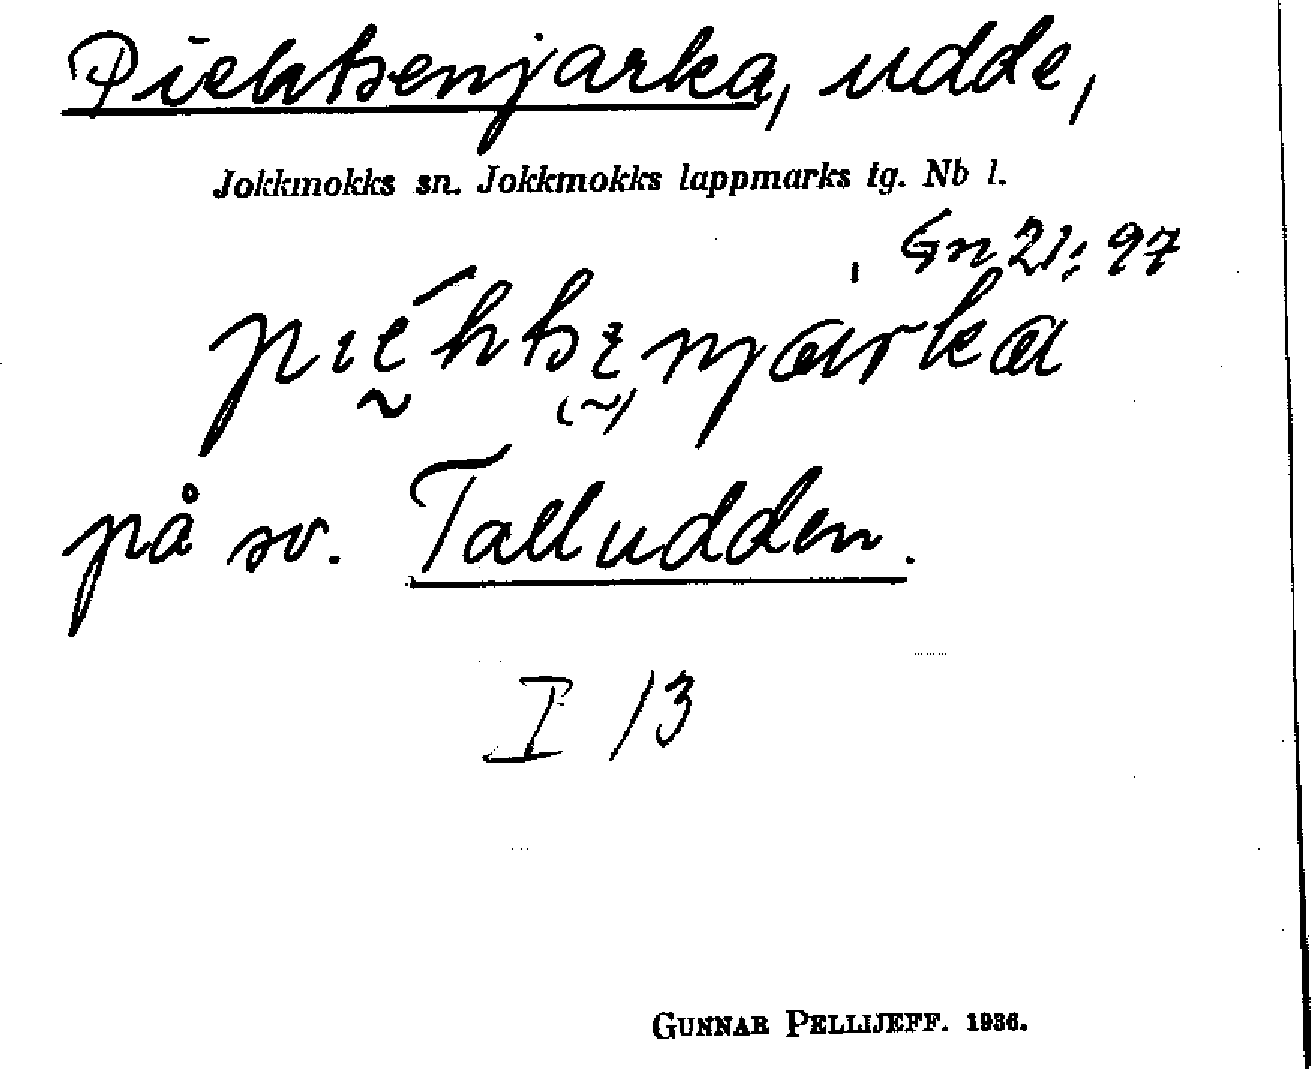 Piehtsenjarka, udde,
Jokkmokks sn. Jokkmokks lappmarks tg. Nb l.
Gn 21: 97
på sv. Talludden.
I 13
GUNNAR PELLIJEFF. 1936.